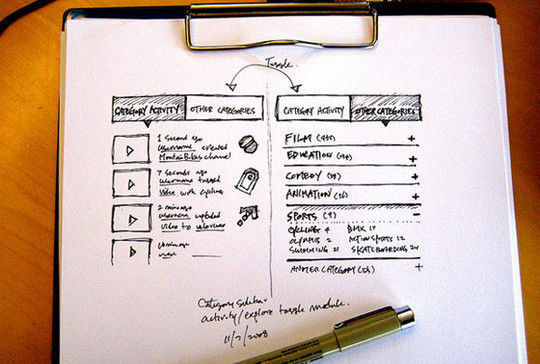 Toggle
CATEGORY ACTIVITY OTHER CATEGORIES
1 second ago
username created
Mountain Bikes channel
7 seconds ago
username tagged
video with cycling
2 min ago
username updated
video to
CATEGORY ACTIVITY OTHER CATEGORIES
FILM +
EDUCATION +
COMEDY +
ANIMATION +
SPORTS (9) −
CYCLING 4 BMX 17
OLYMPICS 2 ACTION SPORTS 12
SWIMMING 21 SKATEBOARDING 20
ANOTHER CATEGORY +
Category sidebar
activity/explore toggle module.
11/7/2008